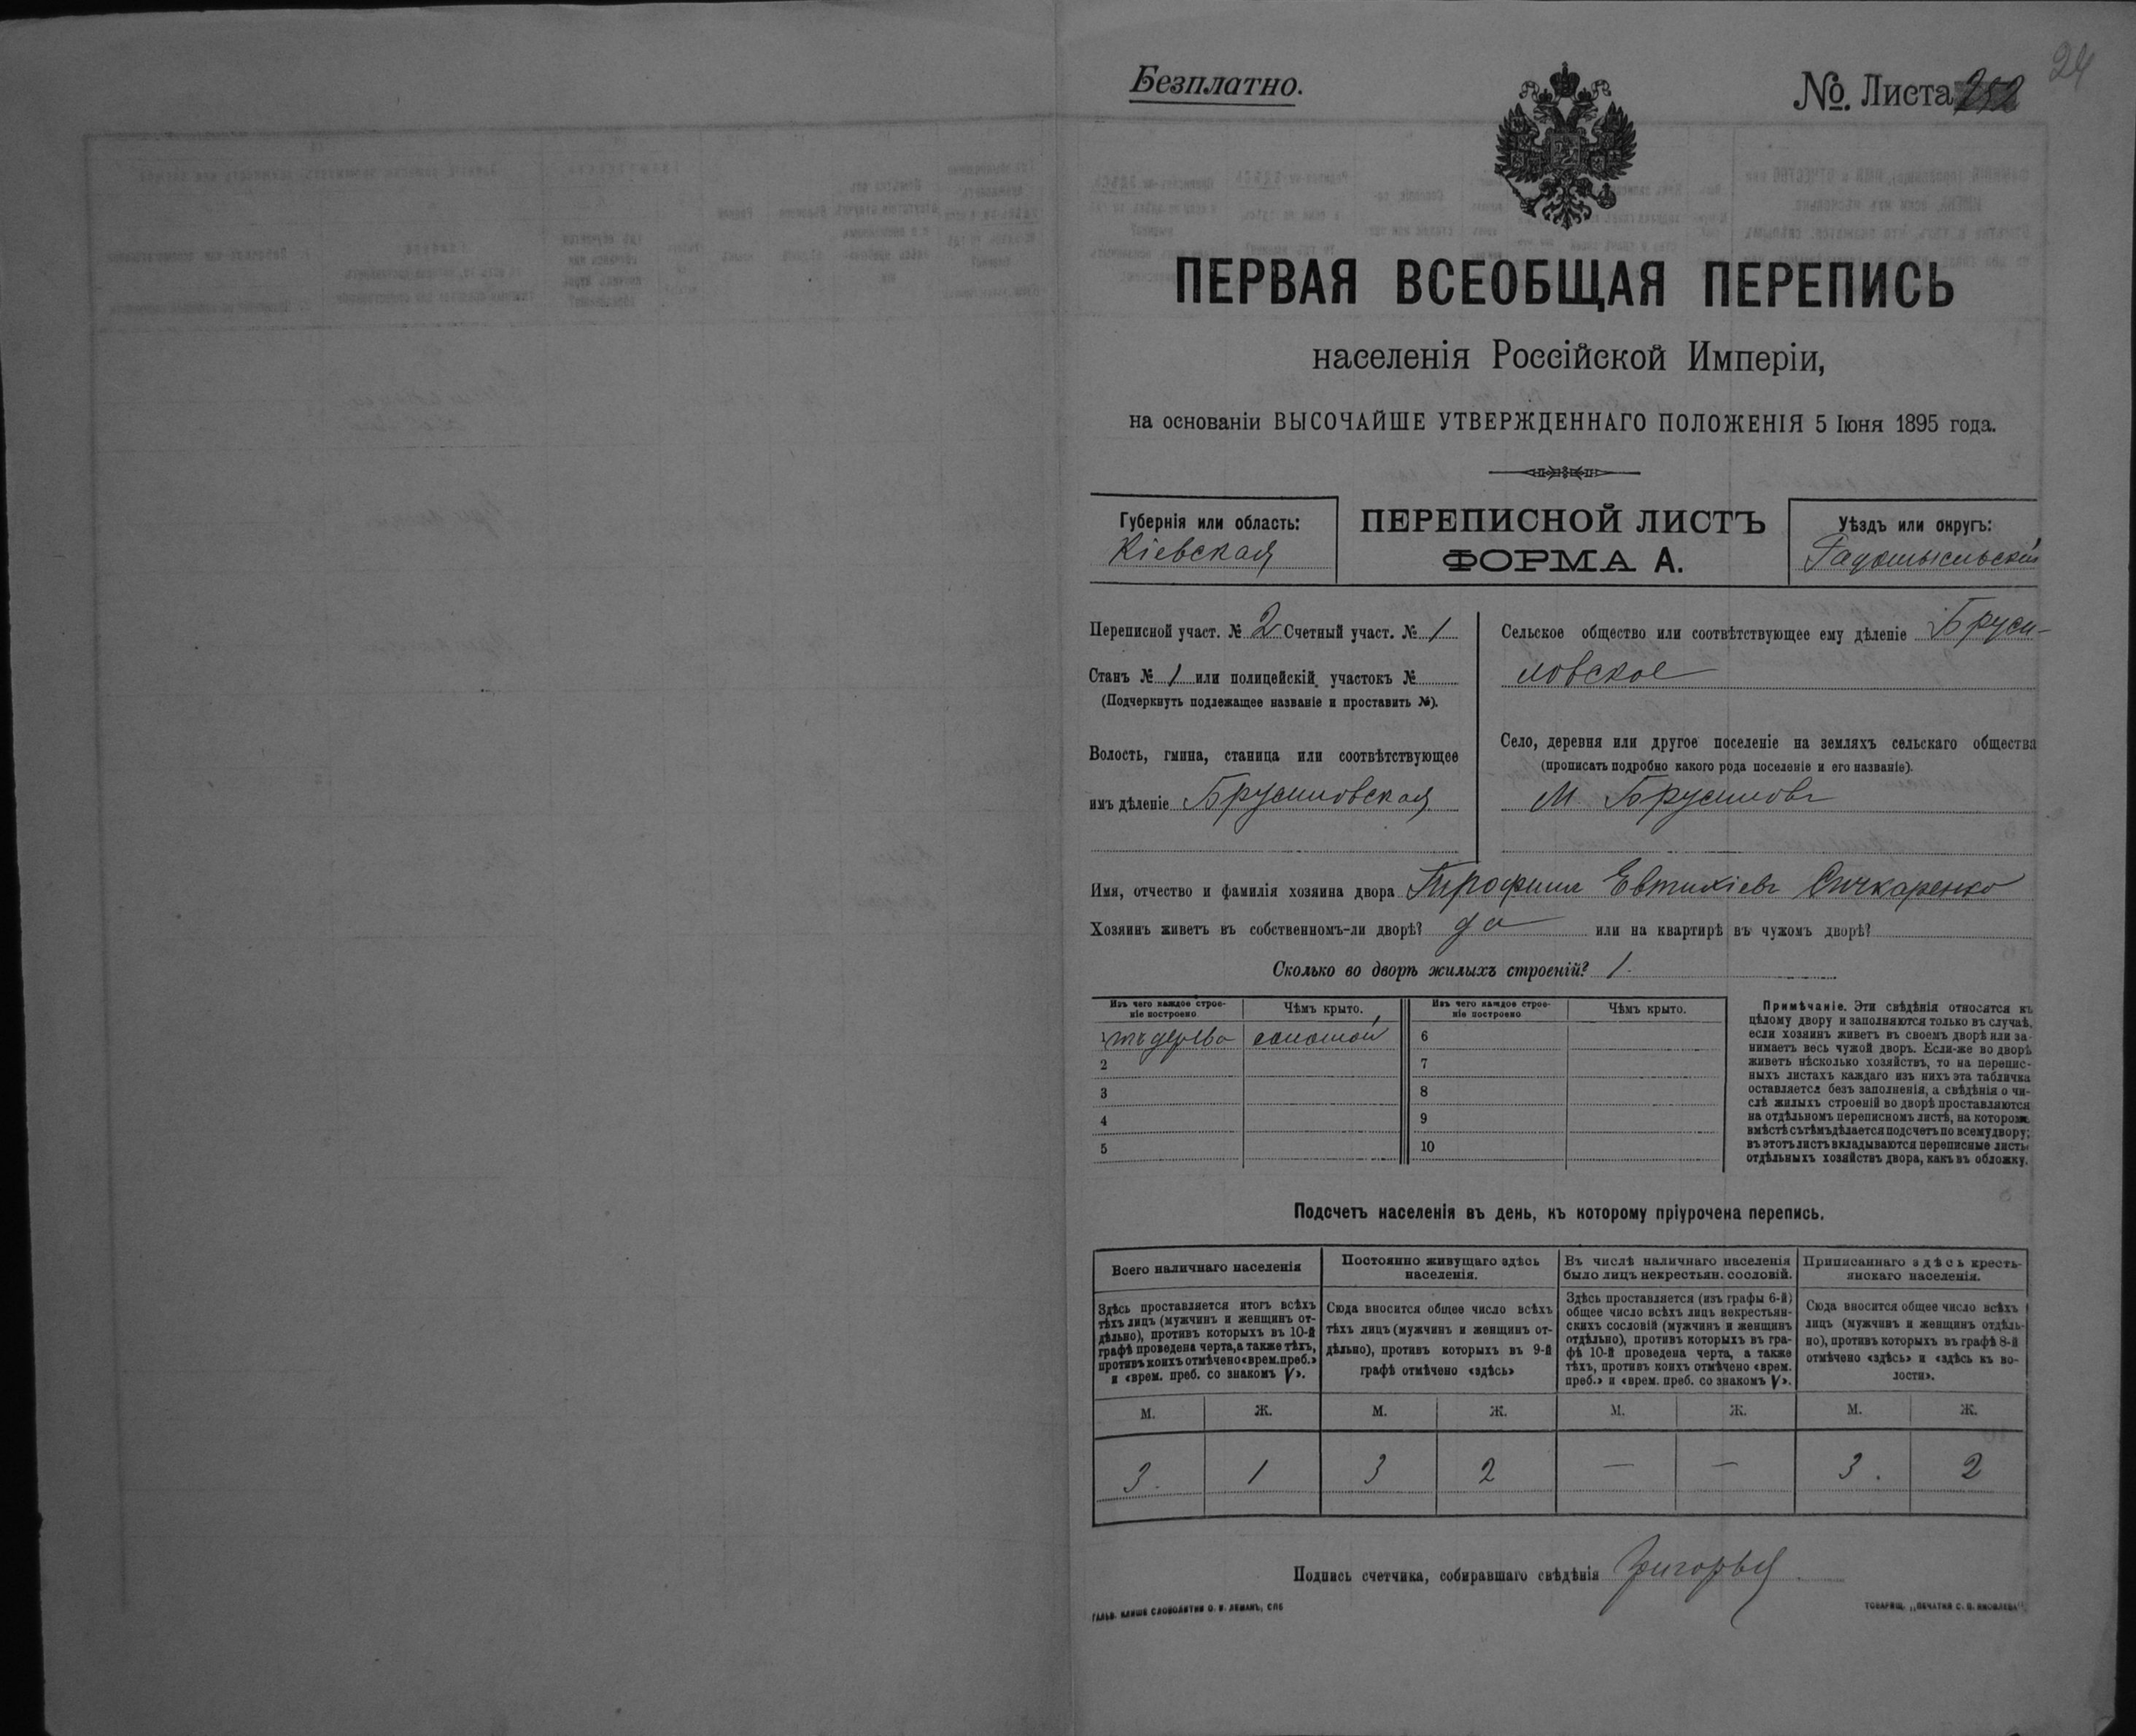 24
Безплатно.
№. Листа 252
ПЕРВАЯ ВСЕОБЩАЯ ПЕРЕПИСЬ
населенія Россійской Имперіи,
на основаніи ВЫСОЧАЙШЕ УТВЕРЖДЕННАГО ПОЛОЖЕНІЯ 5 Іюня 1895 года.
Губернія или область:
Кіевская
ПЕРЕПИСНОЙ ЛИСТЪ
ФОРМА А.
Уѣздъ или округъ:
Радомысльскій
Переписной участ. № 2 Счетный участ. № 1
Станъ № 1 или полицейскій участокъ №
(Подчеркнуть подлежащее названіе и проставить №).
Волость, гмина, станица или соотвѣтствующее
имъ дѣленіе Брусиловская
Сельское общество или соотвѣтствующее ему дѣленіе Бруси-
ловское
Село, деревня или другое поселеніе на земляхъ сельскаго общества
(прописать подробно какого рода поселеніе и его названіе).
М. Брусиловъ
Имя, отчество и фамилія хозяина двора Трофимъ Евтихіевъ Сичкаренко
Хозяинъ живетъ въ собственномъ-ли дворѣ? да или на квартирѣ въ чужомъ дворѣ?
Сколько во дворѣ жилыхъ строеній? 1.
Изъ чего каждое строе-
ніе построено
Чѣмъ крыто.
Изъ чего каждое строе-
ніе построено
Чѣмъ крыто.
1 изъ дерева соломой 6
2 7
3 8
4 9
5 10
Примѣчаніе. Эти свѣдѣнія относятся къ
цѣлому двору и заполняются только въ случаѣ,
если хозяинъ живетъ въ своемъ дворѣ или за-
нимаетъ весь чужой дворъ. Если-же во дворѣ
живетъ нѣсколько хозяйствъ, то на перепис-
ныхъ листахъ каждаго изъ нихъ эта табличка
оставляется безъ заполненія, а свѣдѣнія о чи-
слѣ жилыхъ строеній во дворѣ проставляются
на отдѣльномъ переписномъ листѣ, на которомъ
вмѣстѣ съ тѣмъ дѣлается подсчетъ по всему двору;
въ этотъ листъ вкладываются переписные листы
отдѣльныхъ хозяйствъ двора, какъ въ обложку.
Подсчетъ населенія въ день, къ которому пріурочена перепись.
Всего наличнаго населенія
Постоянно живущаго здѣсь
населенія.
Въ числѣ наличнаго населенія
было лицъ некрестьян. сословій.
Приписаннаго здѣсь кресть-
янскаго населенія.
Здѣсь проставляется итогъ всѣхъ
тѣхъ лицъ (мужчинъ и женщинъ от-
дѣльно), противъ которыхъ въ 10-й
графѣ проведена черта, а также тѣхъ,
противъ коихъ отмѣчено «врем. преб.»
и «врем. преб. со знакомъ V».
Сюда вносится общее число всѣхъ
тѣхъ лицъ (мужчинъ и женщинъ от-
дѣльно), противъ которыхъ въ 9-й
графѣ отмѣчено «здѣсь»
Здѣсь проставляется (изъ графы 6-й)
общее число всѣхъ лицъ некрестьян-
скихъ сословій (мужчинъ и женщинъ
отдѣльно), противъ которыхъ въ гра-
фѣ 10-й проведена черта, а также
тѣхъ, противъ коихъ отмѣчено «врем.
преб.» и «врем. преб. со знакомъ V».
Сюда вносится общее число всѣхъ
лицъ (мужчинъ и женщинъ отдѣль-
но), противъ которыхъ въ графѣ 8-й
отмѣчено «здѣсь» и «здѣсь въ во-
лости».
М. Ж. М. Ж. М. Ж. М. Ж.
3. 1 3 2 — — 3. 2
Подпись счетчика, собиравшаго свѣдѣнія
ГАЛЬВ. КЛИШЕ СЛОВОЛИТНИ О. И. ЛЕМАНЪ, СПБ
ТОВАРИЩ. „ПЕЧАТНЯ С. П. ЯКОВЛЕВА“.